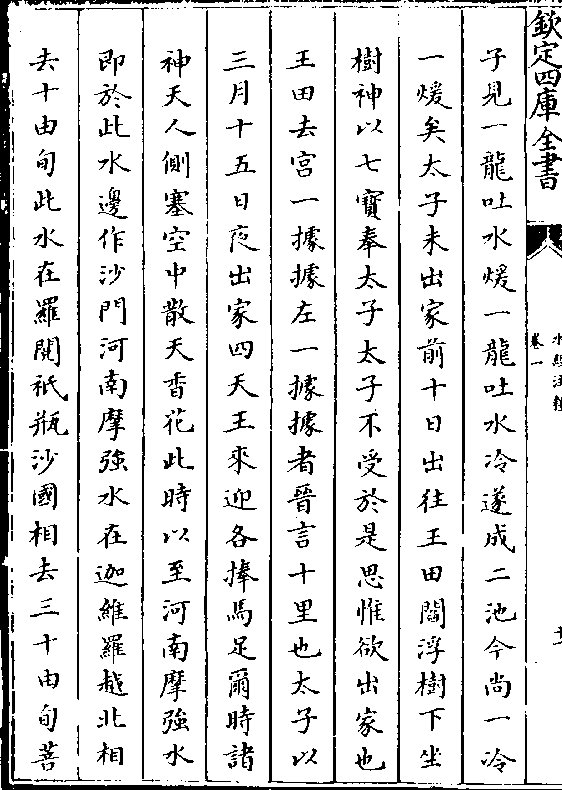 欽定四庫全書
卷一
子見一龍吐水煖一龍吐水冷遂成二池今尚一冷
一煖矣太子未出家前十日出往王田閻浮樹下坐
樹神以七寶奉太子太子不受於是思惟欲出家也
王田去宮一據據左一據據者晉言十里也太子以
三月十五日夜出家四天王來迎各捧馬足爾時諸
神天人側塞空中散天香花此時以至河南摩強水
即於此水邊作沙門河南摩強水在迦維羅越北相
去十由旬此水在羅閱祇瓶沙國相去三十由旬菩